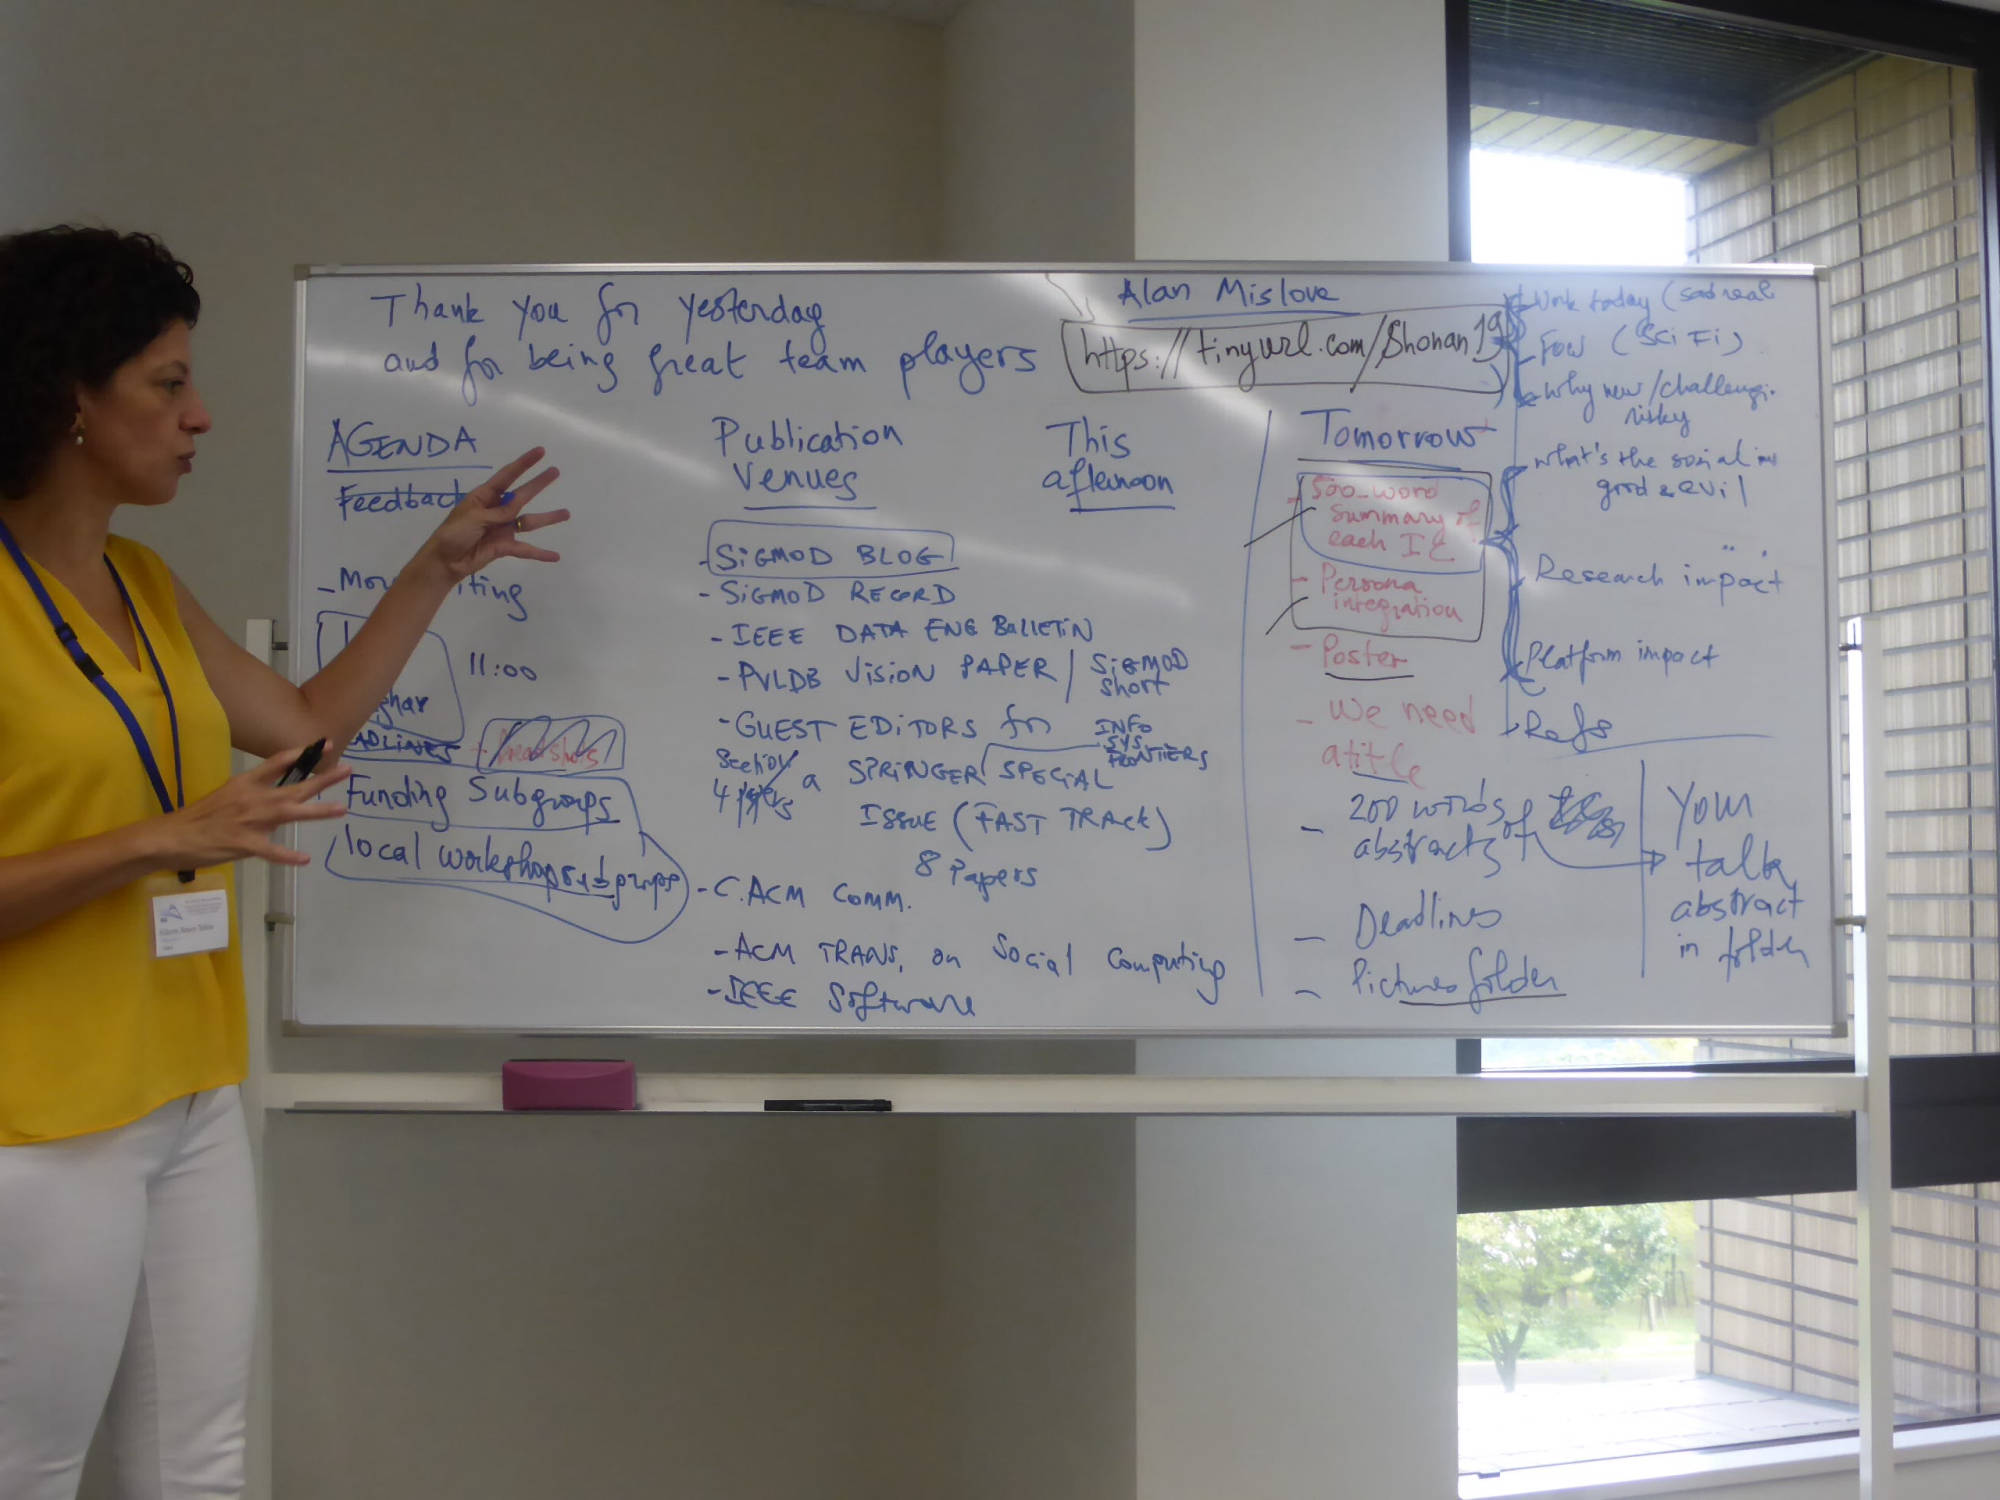 Thank you for yesterday
and for being great team players
Alan Mislove
https://tinyurl.com/Shonan19
AGENDA
Feedback
11:00
Funding Subgroups
local workshop subgroups
Publication
Venues
- SIGMOD BLOG
- SIGMOD RECORD
- IEEE DATA ENG BULLETIN
- PVLDB VISION PAPER / SIGMOD
short
- GUEST EDITORS for INFO
SYS
FRONTIERS
Section
4 papers
a SPRINGER SPECIAL
ISSUE (FAST TRACK)
8 Papers
- C.ACM COMM.
- ACM TRANS. on Social Computing
- IEEE Software
This
afternoon
Tomorrow
- 500-word
summary of
each
- Persona
integration
- Poster
- We need
a title
- 200 words
abstracts of
- Deadlines
- Pictures folder
Your
talk
abstract
in folder
Work today
FoW (Sci Fi)
Why new/
risky
What's the social
good & evil
Research impact
Platform impact
Refs